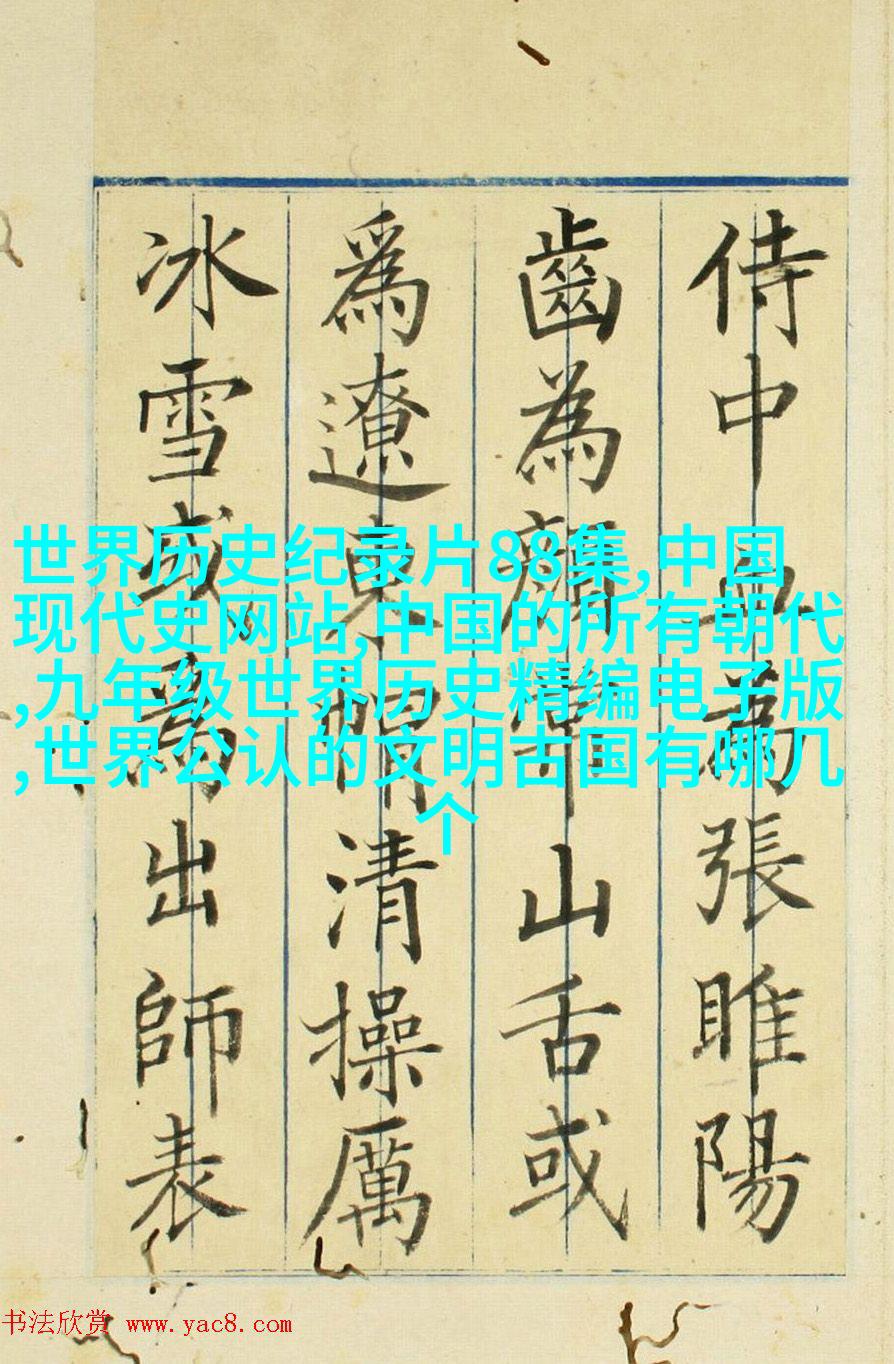 侍中血為張睢陽
齒為顏常山舌或
爲遼東帽清操厲
冰雪或爲出師表
世界历史纪录片88集,中国
现代史网站,中国的所有朝代
,九年级世界历史精编电子版
,世界公认的文明古国有哪几
个
书法欣赏 www.yac8.com